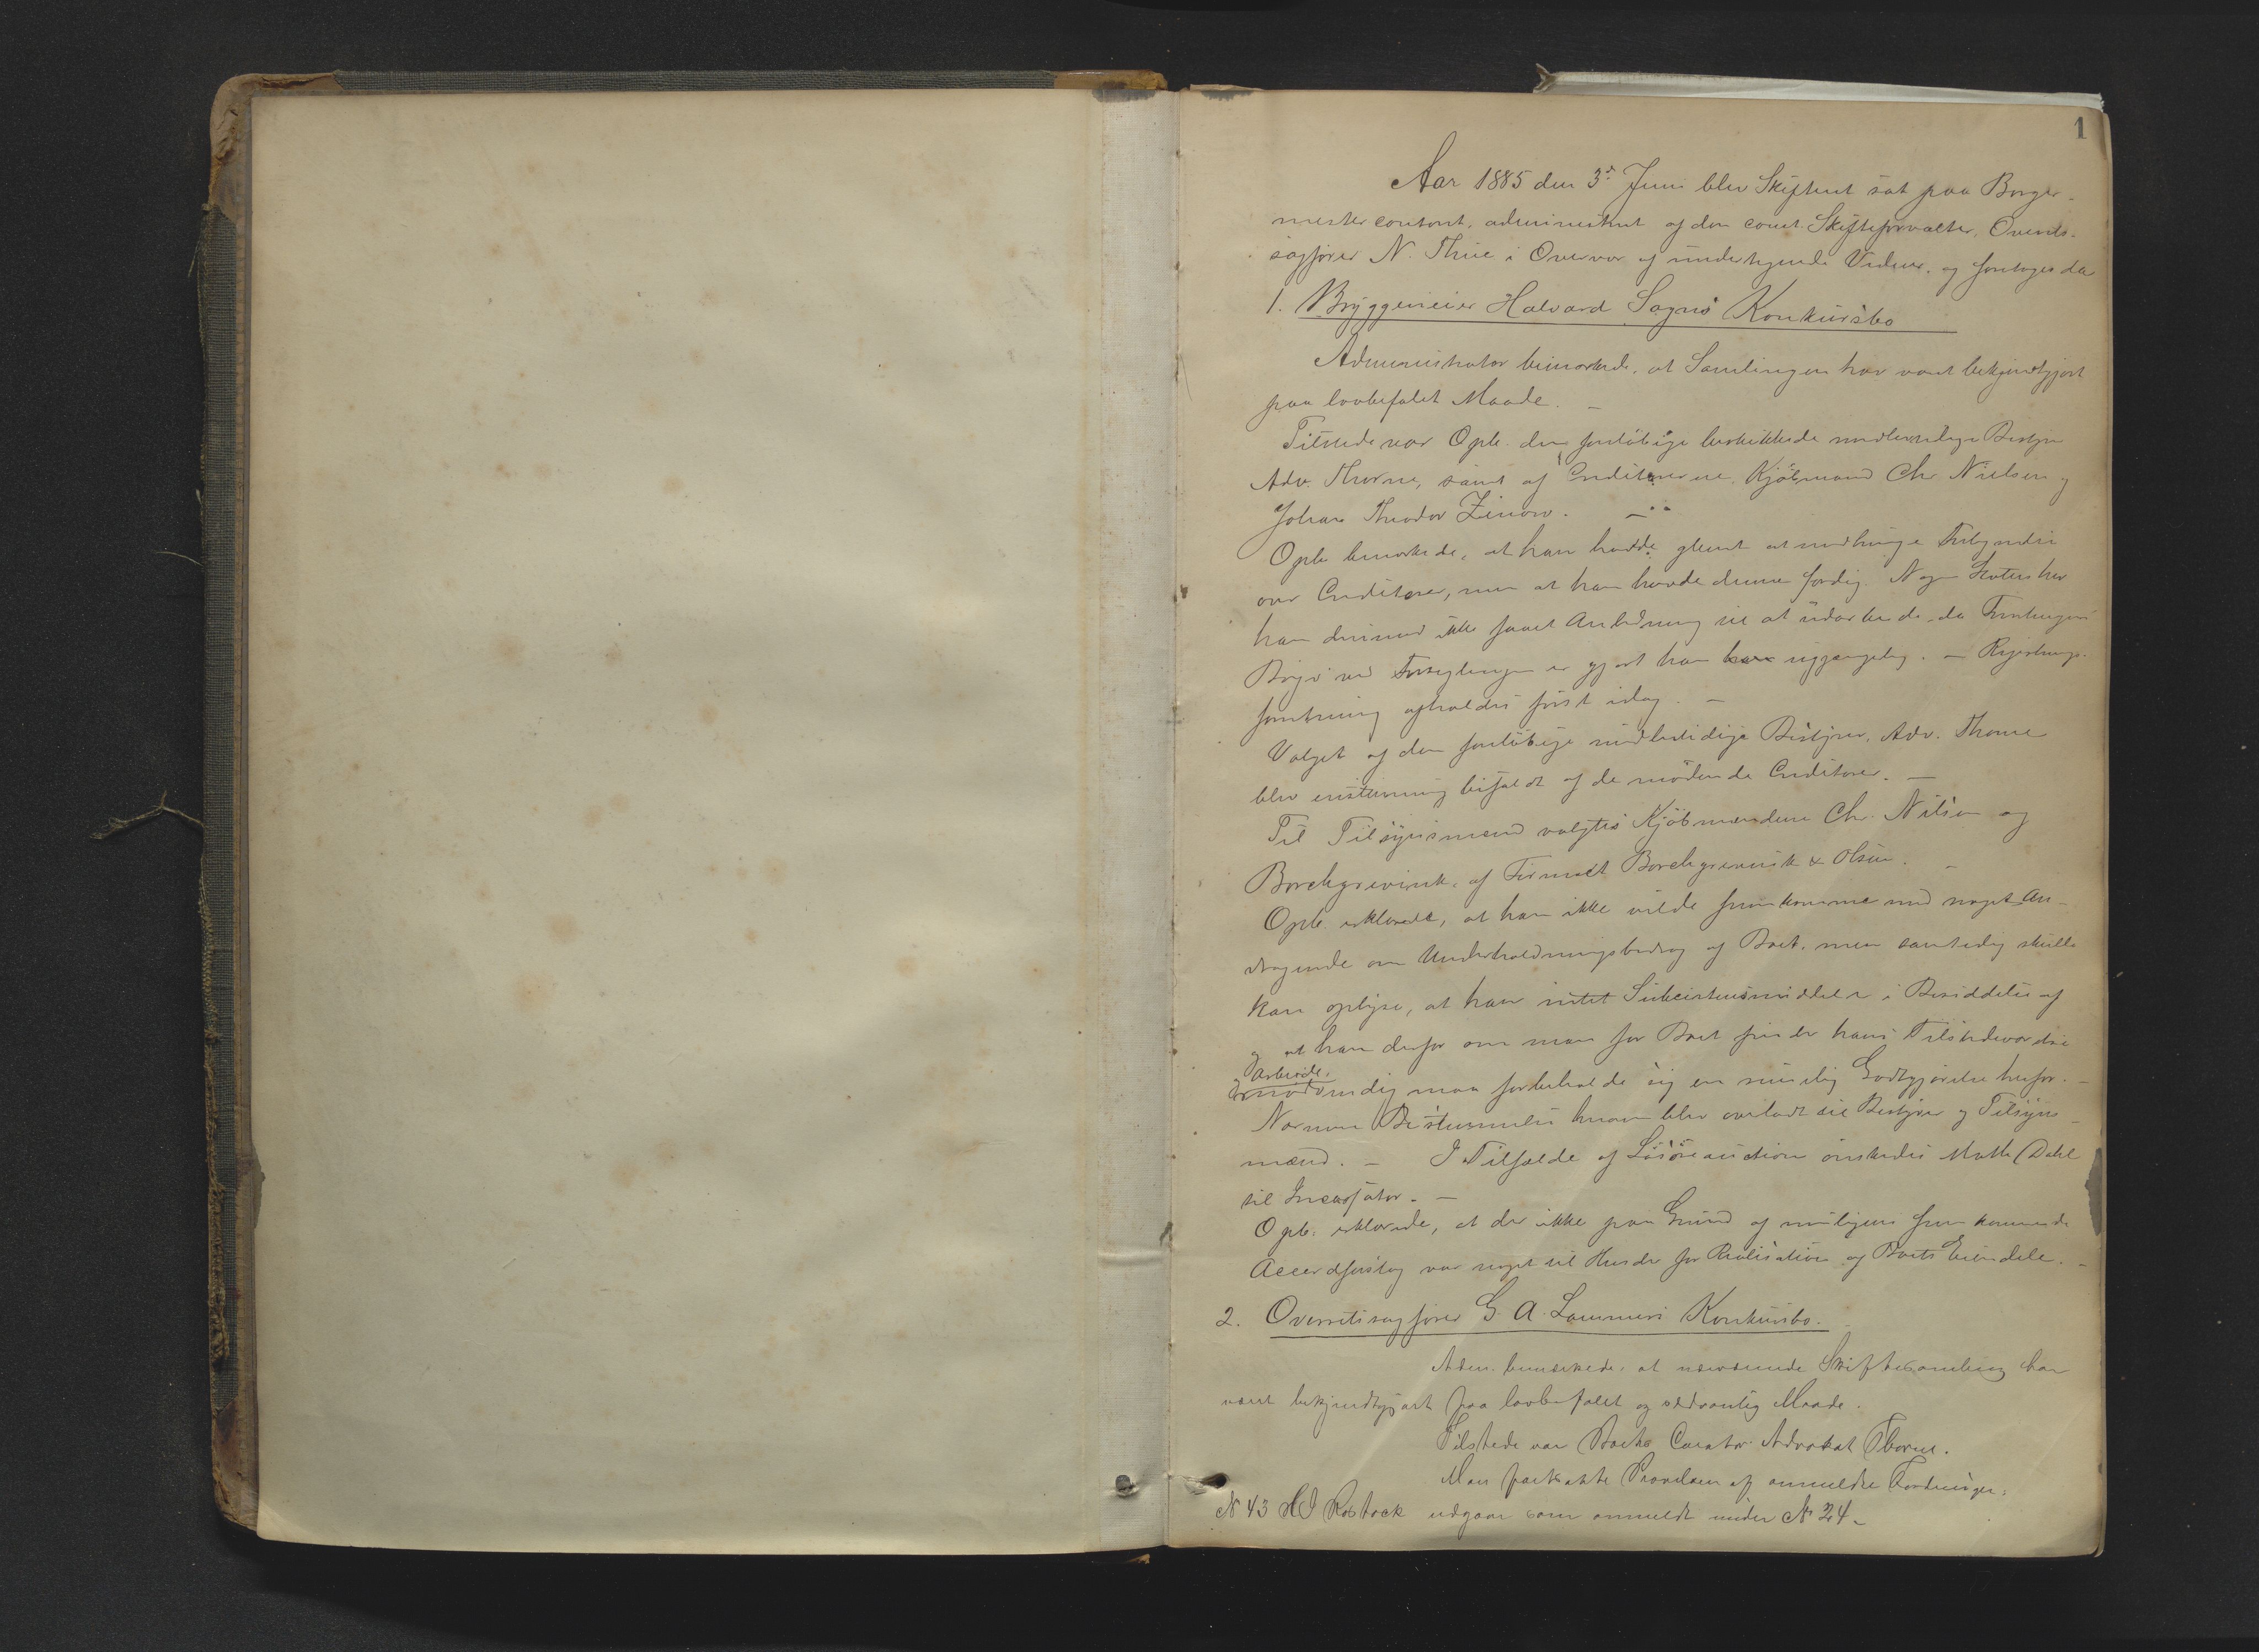 1
Aar 1885 den 3die Juni blev Skifteret sat paa Borger-
mestercontoret, administreret af den const. Skifteforvalter, Overrets-
sagfører N. Thiis i Overvær af undertegnede Vidner, og foretoges da
1. Bryggerieier Halvard Sogns Konkursbo
Administrator bemærkede, at Samlingen har været bekjendtgjort
paa lovbefalet Maade. —
Tilstede var Opb. den foreløbige beskikkede midlertidige Bestyrer
Adv. Thorne, samt af Creditorerne Kjøbmand Chr. Nielsen og
Johan Theodor Zinow. —
Opb. bemærkede, at han havde glemt at medbringe Fortegnelse
over Creditorer, men at han havde denne færdig. Nogen Status har
han derimod ikke faaet Anledning til at udarbeide, da Forretningens
Bøger ved Forseglingen er gjort ham utilgjængelig. — Registrerings-
forretning afholdes først idag. —
Valget af den foreløbige midlertidige Bestyrer, Adv. Thorne
blev enstemmig bifaldt af de mødende Creditorer. —
Til Tilsynsmænd valgtes Kjøbmændene Chr. Nilsen og
Borchgrevink, af Firmaet Borchgrevink & Olsen. —
Opb. erklærede, at han ikke vilde fremkomme med noget An-
dragende om Underholdningsbidrag af Boet, men samtidig skulle
han oplyse, at han intet Subsistensmiddel er i Besiddelse af
og at han derfor om man for Boet finder hans Tilstedeværelse
og Arbeide
nødvendig maa forbeholde sig en rimelig Godtgjørelse herfor. —
Nærmere Bestemmelse herom blev overladt til Bestyrer og Tilsyns-
mænd. — I Tilfælde af Løsøreauction ønskedes Mathe Dahl
til Incassator. —
Opb. erklærede, at der ikke paa Grund af muligens fremkommende
Accordforslag var noget til Hinder for Realisation af Boets Eiendele. —
2. Overretssagfører G. A. Lammers Konkursbo.
Adm. bemærkede, at nærværende Skiftesamling har
været bekjendtgjort paa lovbefalet og sedvanlig Maade.
Tilstede var Boets Curator Advokat Thorne.
Man fortsatte Prøvelsen af anmeldte Fordringer:
N 43 H J Rostock udgaar som anmeldt under N 24.